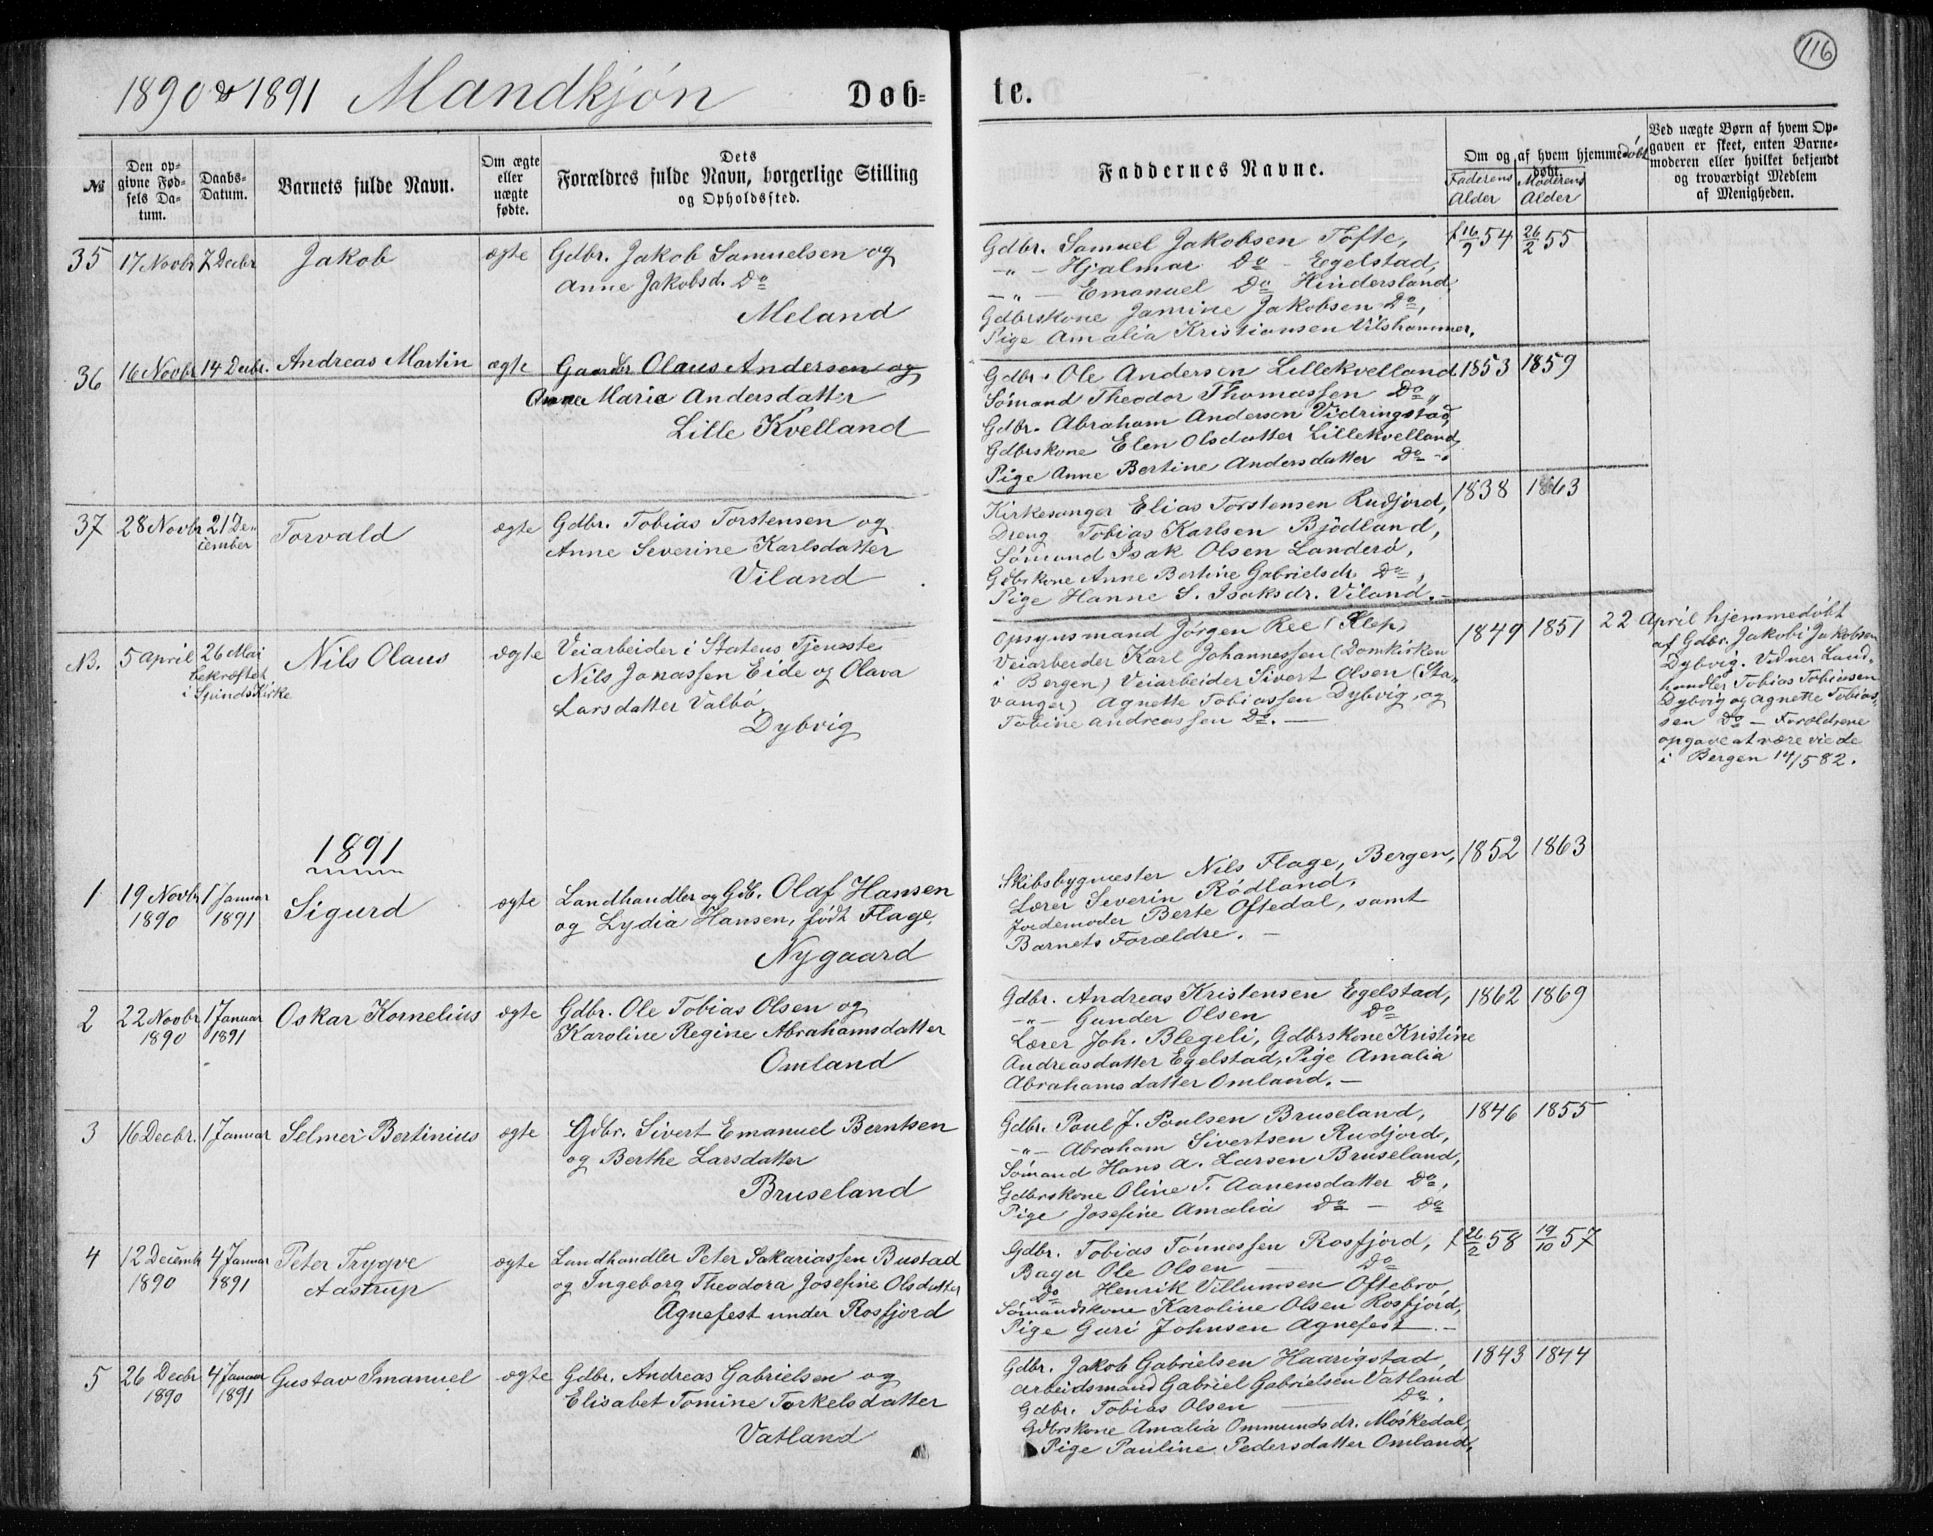 116
1890 & 1891 Mandkjön Døb= te.
№
Den op-
givne Fød-
sels Da-
tum.
Daabs-
Datum.
Barnets fulde Navn.
Om ægte
eller
uægte
fødte.
Dets
Forældres fulde Navn, borgerlige Stilling
og Opholdssted.
Faddernes Navne.
Om og af hvem hjemmedöbt
døbt.
Faderens
Alder
Moderens
Alder
Ved uægte Børn af hvem Op-
gaven er skeet, enten Barne-
moderen eller hvilket bekjendt
og troværdigt Medlem
af Menigheden.
35 17 Novbr 7 Decbr Jakob ægte
Gdbr. Jakob Samuelsen og
Anne Jakobsd. Do
Meland
Gdbr. Samuel Jakobsen Tofte,
-"- Hjalmar Do - Egelstad,
-"- Emanuel Do Hindersland,
Gdbrskone Jamine Jakobsen Do,
Pige Amalia Kristiansen Vilshammer.
f 16/9 54 26/2 55
36 16 Novbr 14 Decbr. Andreas Martin ægte
Gaardbr Olaus Andersen og
Anna Marie Andersdatter
Lille Kvelland
Gdbr. Ole Andersen Lillekvelland
Sömand Theodor Thomassen Do,
Gdbr. Abraham Andersen Vidringstad,
Gdbrskone Elen Olsdatter Lillekvelland,
Pige Anne Bertine Andersdatter Do -.
1853 1859
37 28 Novbr 21 De-
cember Torvald ægte
Gdbr. Tobias Torstensen og
Anne Severine Karlsdatter
Viland
Kirkesanger Elias Torstensen Rudjord,
Dreng Tobias Karlsen Bjödland,
Sömand Isak Olsen Landerö,
Gdbrskone Anne Bertine Gabrielsdr. Do,
Pige Hanne S. Isaksdr. Viland.-
1838 1863
NB. 5 April 26 Mai
bekræftet
i Spinds Kirke
Nils Olaus ægte
Veiarbeider i Statens Tjeneste
Nils Jonassen Eide og Olava
Larsdatter Valbö.
Dybvig
Opsynsmand Jörgen Ree (Klep)
Veiarbeider Karl Johannessen (Domkirken
i Bergen) Veiarbeider Sivert Olsen (Sta-
vanger) Agnette Tobiassen Dybvig og
Tobine Andreassen Do. -
1849 1851
22 April hjemmedöbt
af Gdbr. Jakob Jakobsen
Dybvig. Vidner Land-
handler Tobias Tobiassen
Dybvig og Agnette Tobias-
sen Do - Forældrene
opgave at være viede
i Bergen 14/5 82.
1891
1 19 Novbr
1890 1 Januar
1891 Sigurd ægte
Landhandler og Gdb. Olaf Hansen
og Lydia Hansen, född Flage,
Nygaard
Skibsbygmester Nils Flage, Bergen,
Lærer Severin Rödland,
Jordemoder Berte Oftedal, samt
Barnets Forældre. -
1852 1863
2 22 Novbr
1890 1 Januar
1891 Oskar Kornelius ægte
Gdbr. Ole Tobias Olsen og
Karoline Regine Abrahamsdatter
Omland
Gdbr. Andreas Kristensen Egelstad,
-"- Gunder Olsen Do
Lærer Joh. Blegeli, Gdbrskone Kristine
Andreasdatter Egelstad, Pige Amalia
Abrahamsdatter Omland. -
1862 1869
3 16 Decbr. 1 Januar Selmer Bertinius ægte
Gdbr. Sivert Emanuel Berntsen
og Berthe Larsdatter
Bruseland
Gdbr. Poul J. Poulsen Bruseland,
-"- Abraham Sivertsen Rudjord,
Sömand Hans A. Larsen Bruseland,
Gdbrskone Oline T. Aanensdatter Do,
Pige Josefine Amalia Do - Do
1846 1855
4 12 Decembr
1890 4 Januar
1891 Peter Trygve
Aastrup ægte
Landhandler Peter Sakariassen Bustad
og Ingeborg Theodora Josefine Olsdatter
Agnefest under Rosfjord
Gdbr. Tobias Tönnessen Rosfjord,
Bager Ole Olsen Do
Do Henrik Villumsen Oftebro,
Sömandskone Karoline Olsen Rosfjord,
Pige Guri Johnsen Agnefest. -
f 26/2 58 19/10 57
5 26 Decbr
1890 4 Januar
1891 Gustav Imanuel ægte
Gdbr. Andreas Gabrielsen og
Elisabet Tomine Torkelsdatter
Vatland
Gdbr. Jakob Gabrielsen Haarigstad,
Arbeidsmand Gabriel Gabrielsen Vatland
Gdbr. Tobias Olsen Do.
Gdbrskone Amalia Ommundsdr. Möskedal,
Pige Pauline Pedersdatter Omland.
1843 1844